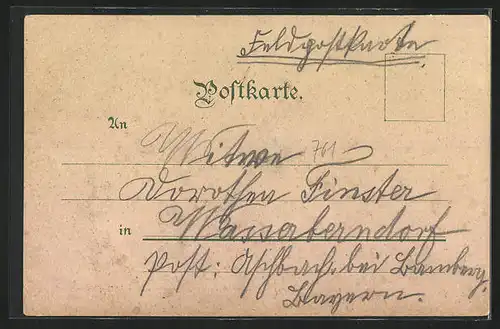 Feldpostkarte
Postkarte.
An Witwe 701
Dorothea Finster
in Wasserberndorf
Post: Aschbach bei Bamberg,
Bayern.